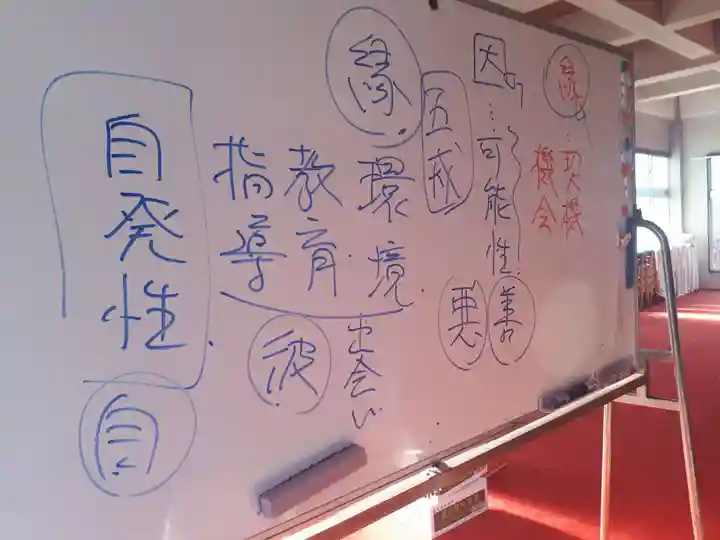 縁…契機
機会
因…可能性
善
悪
五戒
縁
環境
教育
指導
出会い
彼
自発性
自